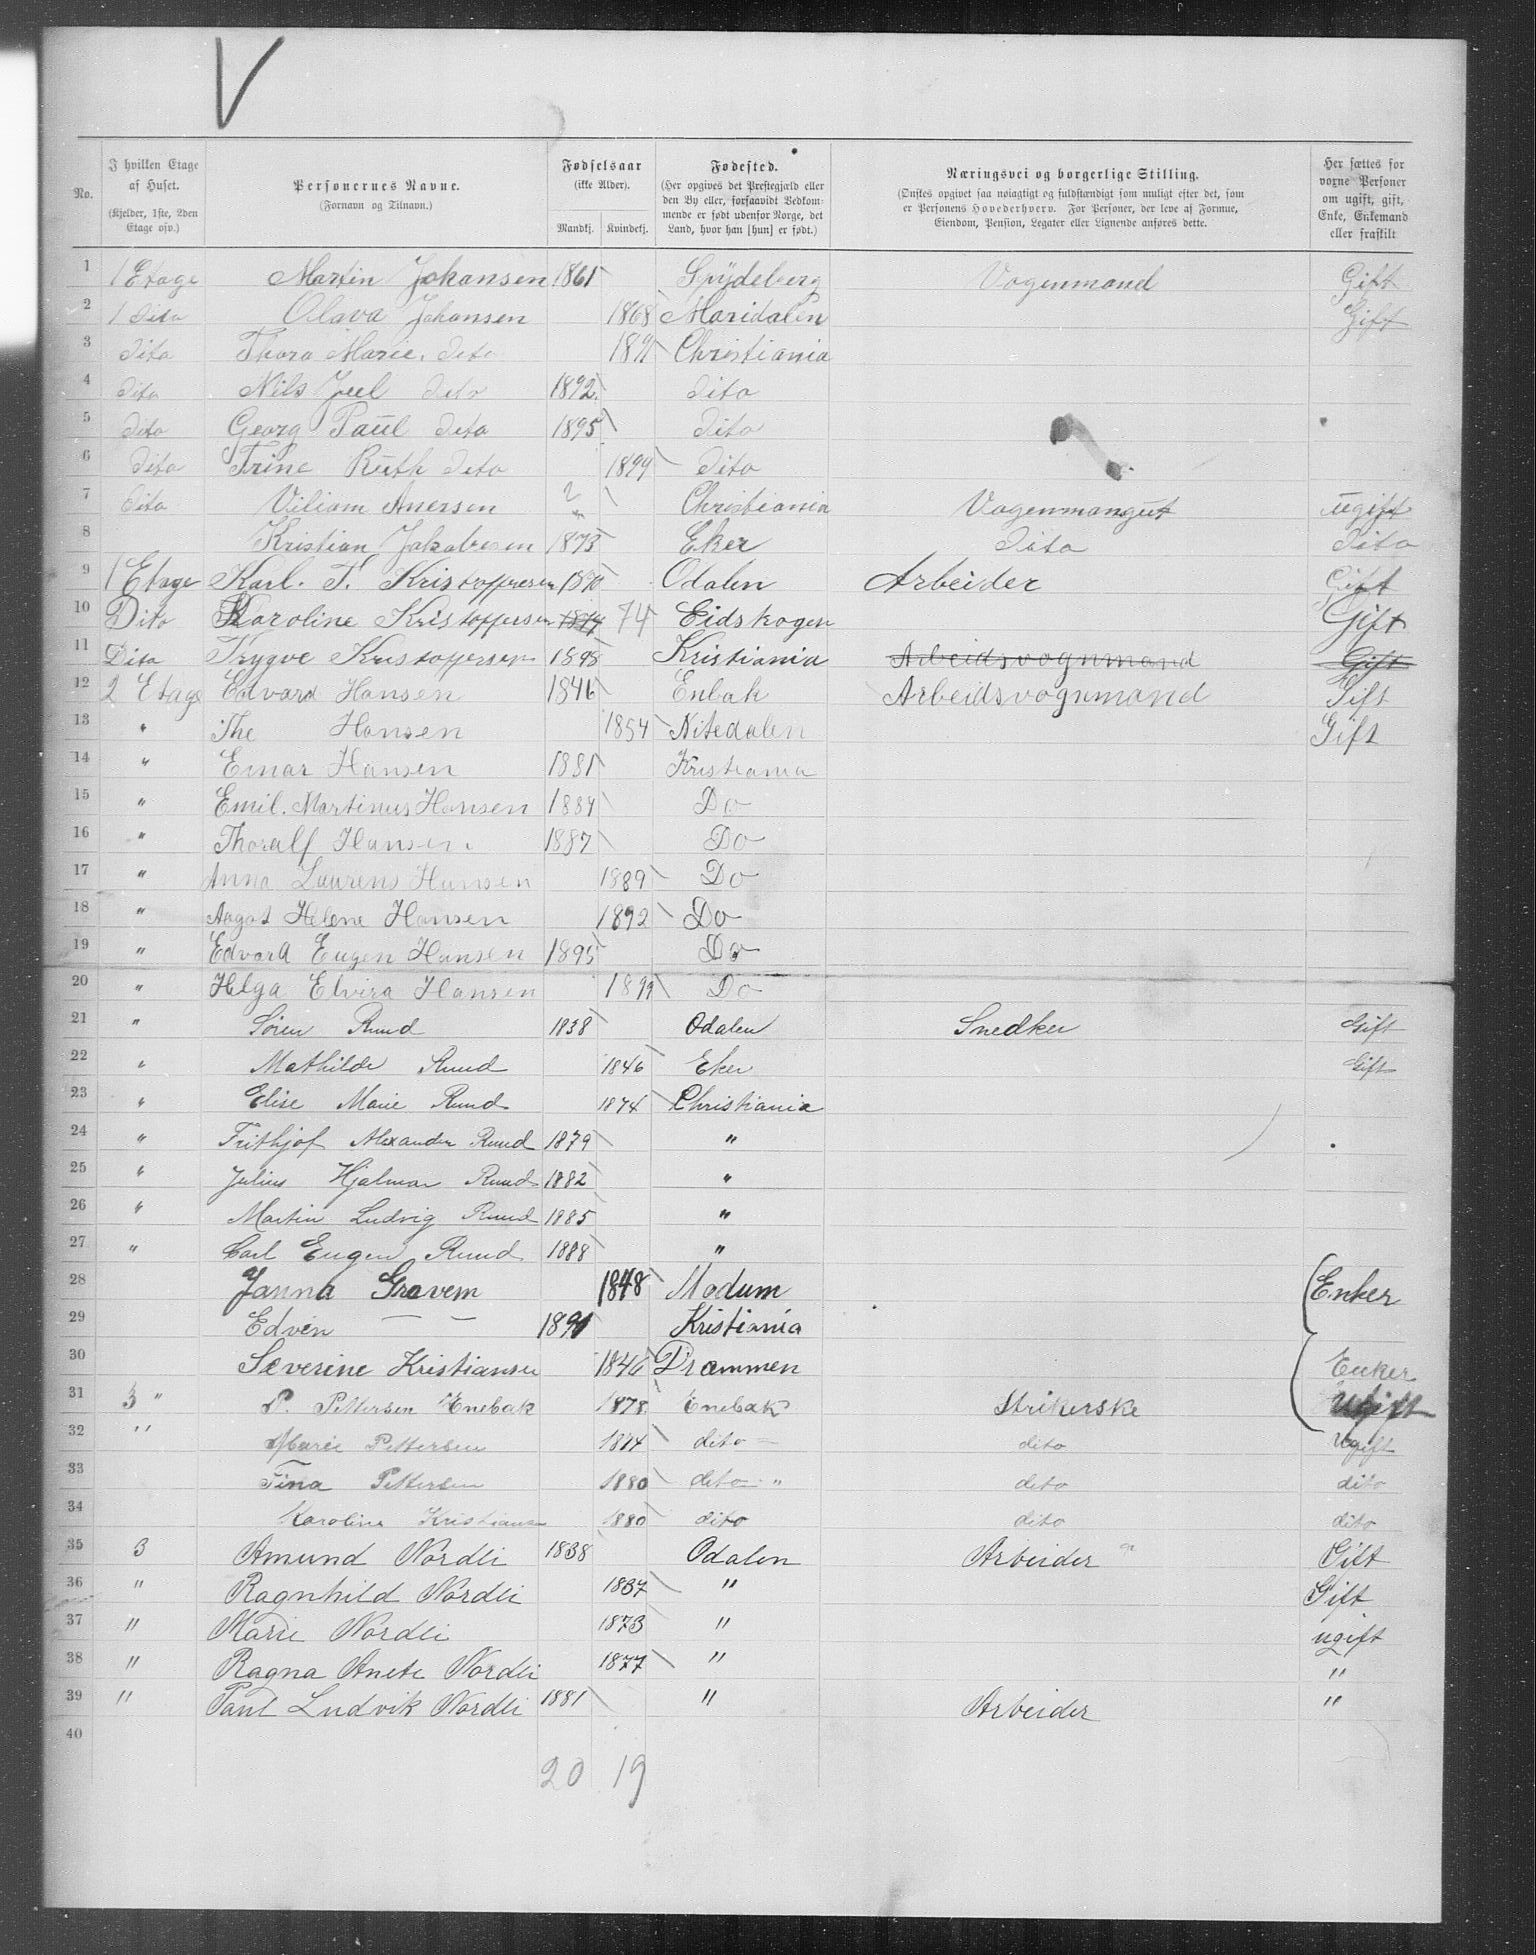 V
No. | I hvilken Etage af Huset. (Kjelder, 1ste, 2den Etage osv.) | Personernes Navne. (Fornavn og Tilnavn.) | Fødselsaar (ikke Alder). Mandkj. | Kvindekj. | Fødested. (Her opgives det Prestegjæld eller den By eller, forsaavidt Vedkommende er født udenfor Norge, det Land, hvor han [hun] er født.) | Næringsvei og borgerlige Stilling. (Ønskes opgivet saa nøiagtigt og fuldstændigt som muligt efter det, som er Personens Hovederhverv. For Personer, der leve af Formue, Eiendom, Pension, Legater eller Lignende anføres dette. | Her sættes for voxne Personer om ugift, gift, Enke, Enkemand eller fraskilt
1 1 Etage Martin Johansen 1861 Spÿdeberg Vogenmand Gift
2 1 dito Olava Johansen 1868 Maridalen Gift
3 dito Thora Marie dito 1891 Christiania
4 dito Nils Juel dito 1892 dito
5 dito Georg Paul dito 1895 dito
6 dito Trine Ruth dito 1899 dito
7 dito Viliam Anersen Christiania Vogenmangut ugift
8 Kristian Jakobsen 1873 Eker dito dito
9 1 Etage Karl. T. Kristoffersen 1870 Odalen Arbeider Gift
10 Dito Karoline Kristoffersen 1874 74 Eidskogen Gift
11 Dito Trygve Kristoffersen 1898 Kristiania Arbeidsvognmand Gift
12 2 Etage Edvard Hansen 1846 Enbak Arbeidsvognmand Gift
13 " The Hansen 1854 Nitedalen Gift
14 " Einar Hansen 1881 Kristiania
15 " Emil. Martinus Hansen 1884 Do
16 " Thoralf Hansen 1887 Do
17 " Anna Laurens Hansen 1889 Do
18 " Aagot Helene Hansen 1892 Do
19 " Edvard Eugen Hansen 1895 Do
20 " Helga Elvira Hansen 1899 Do
21 " Sören Ruud 1838 Odalen Snedker Gift
22 " Mathilde Ruud 1846 Eker Gift
23 " Elise Marie Ruud 1874 Christiania
24 " Frithjof Alexander Ruud 1879 "
25 " Julius Hjalmar Ruud 1882 "
26 " Martin Ludvig Ruud 1885 "
27 " Carl Eugen Ruud 1888 "
28 Janna Gravem 1848 Modum Enker
29 Edven — — 1891 Kristiania
30 Severine Kristiansen 1846 Drammen Enker
31 3 " P. Pettersen Enebak 1878 Enebak Strikerske Ugift
32 " Marie Pettersen 1874 dito dito Ugift
33 Tina Pettersen 1880 dito " dito dito
34 Karoline Kristiansen 1880 dito dito dito
35 3 Amund Nordli 1838 Odalen Arbeider Gift
36 " Ragnhild Nordli 1837 " Gift
37 " Marie Nordli 1873 " ugift
38 " Ragna Anete Nordli 1877 " "
39 " Paul Ludvik Nordli 1881 " Arbeider "
40
20 19